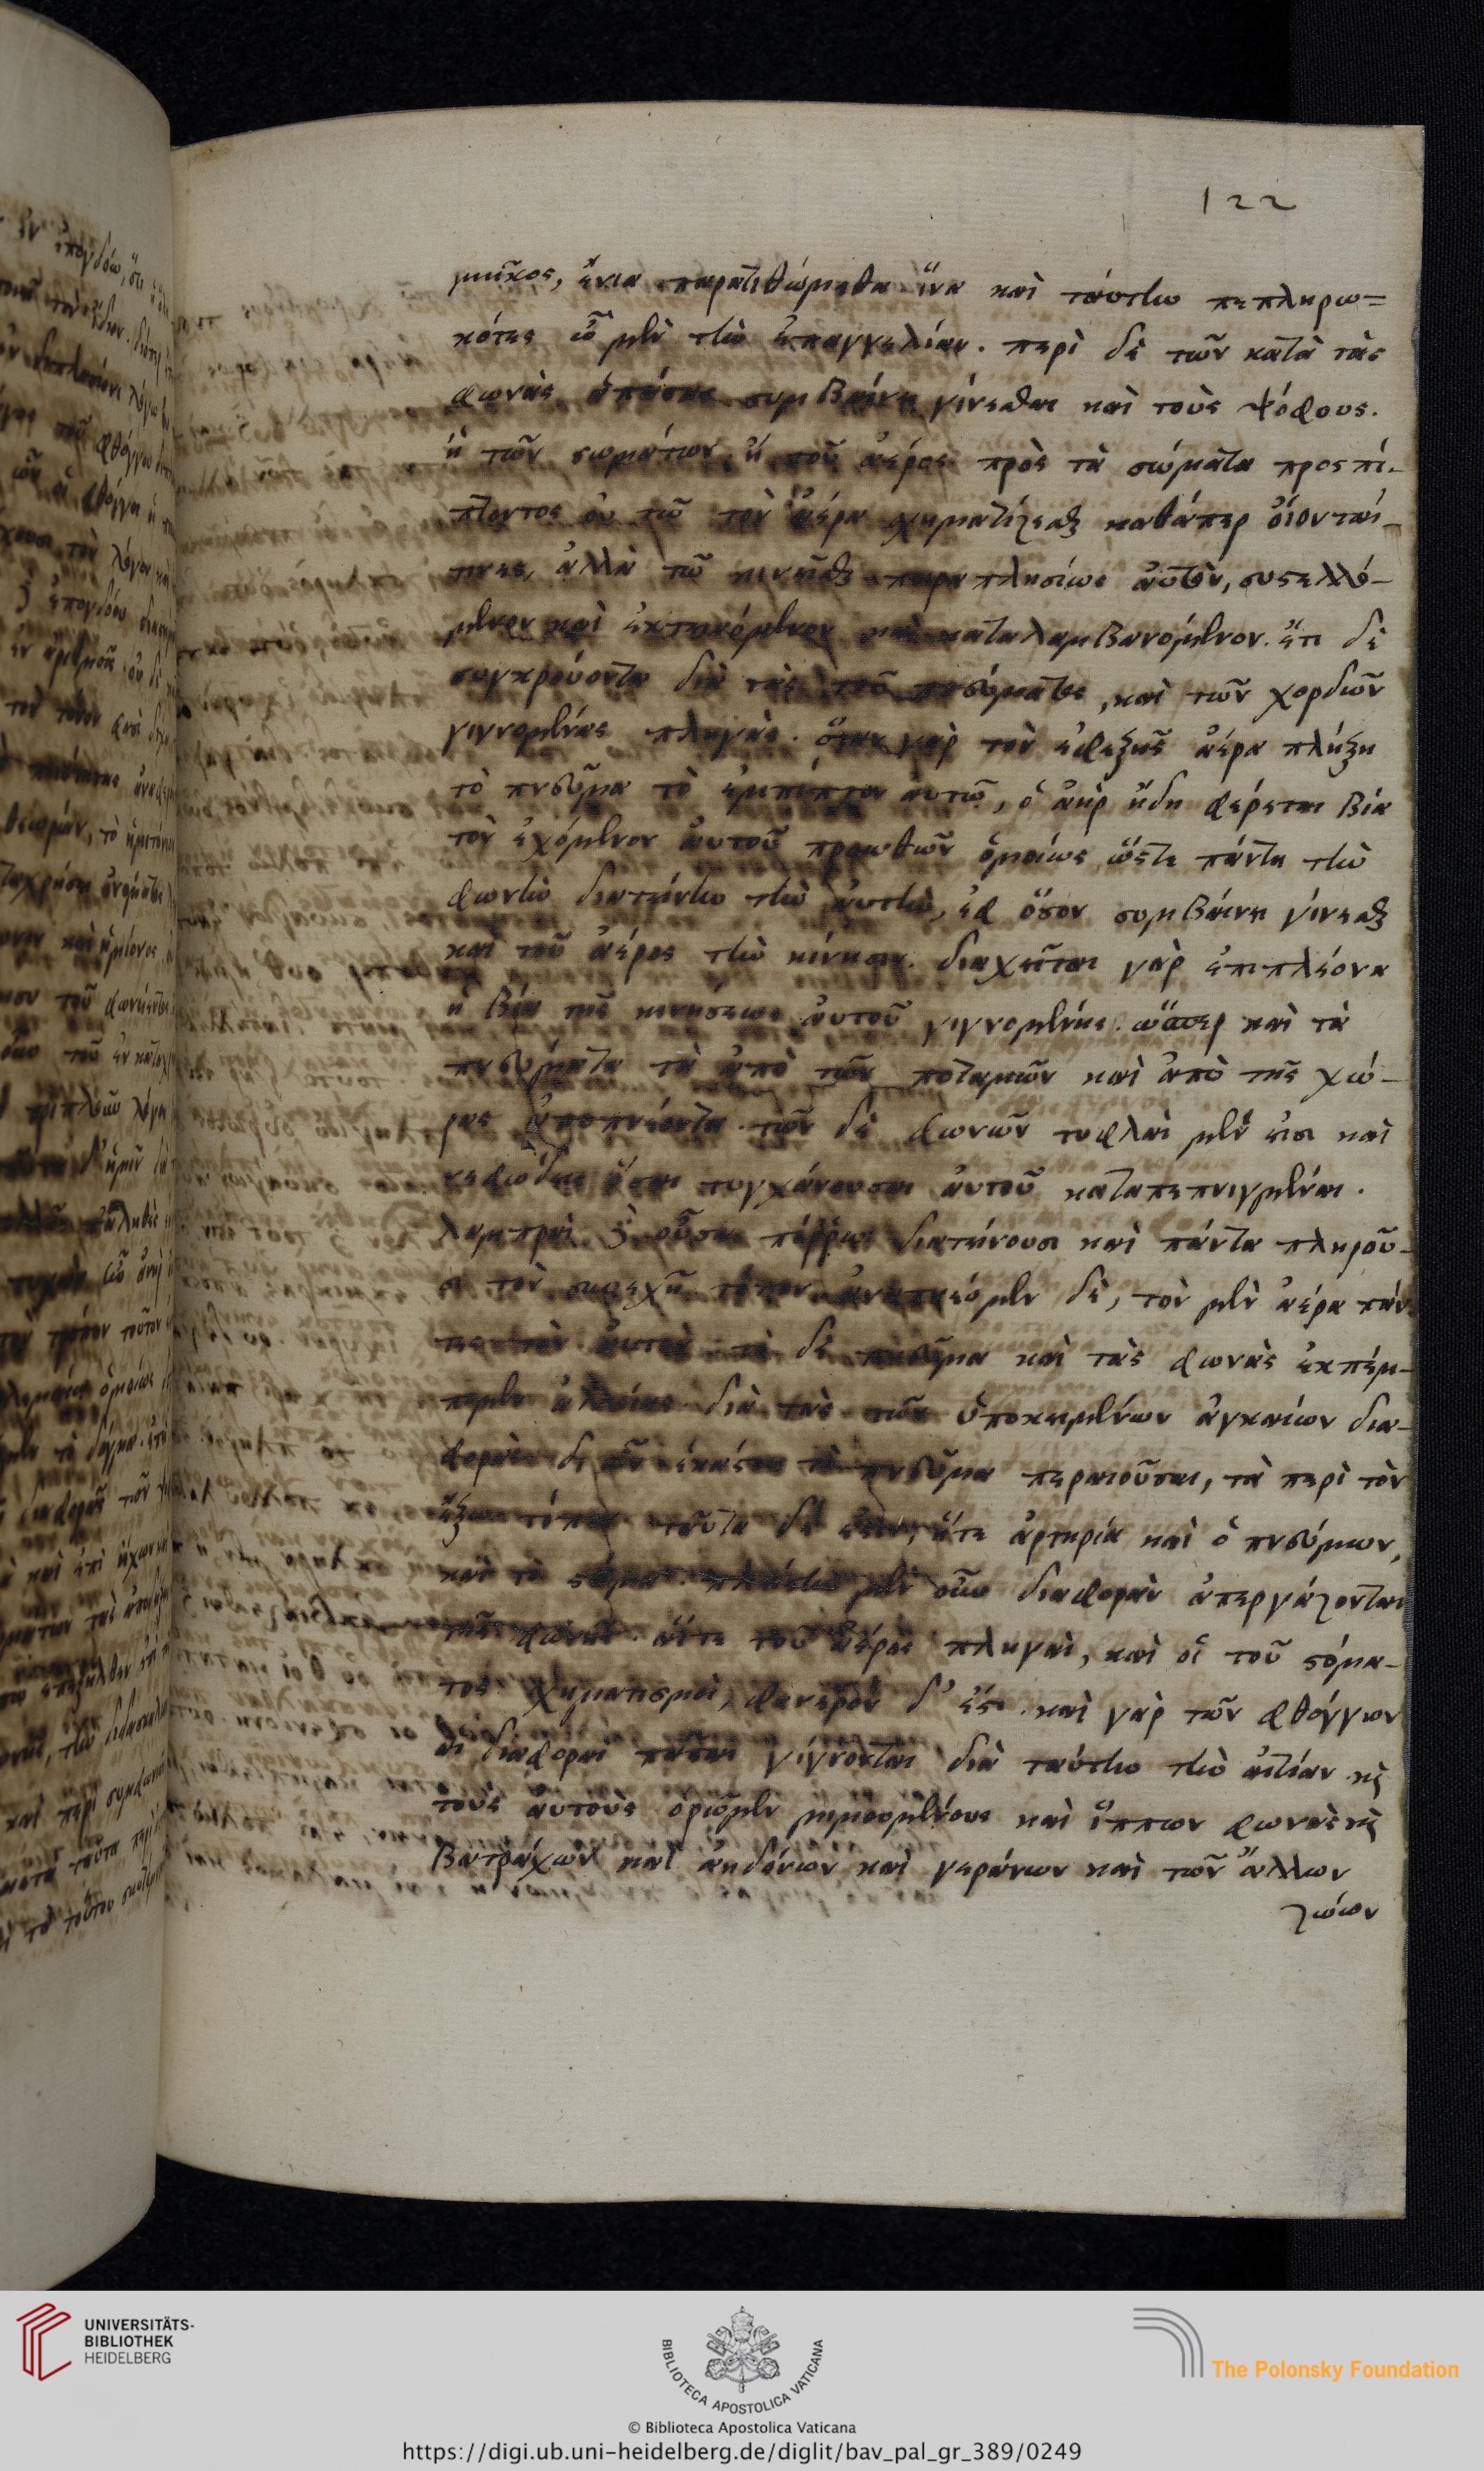 122
μῆκος, ἔνια παρατιθώμεθα ἵνα καὶ ταύτην πεπληρω=
κότες ὦμεν τὴν ἐπαγγελίαν. περὶ δὲ τῶν κατὰ τὰς
φωνὰς ἁπάσας συμβαίνει γίνεσθαι καὶ τοὺς ψόφους.
ἢ τῶν σωμάτων, ἢ τοῦ ἀέρος πρὸς τὰ σώματα προσπί-
πτοντος οὐ τῶ τὸν ἀέρα χηματίζεσθαι καθάπερ οἴονταί
τινες, ἀλλὰ τῶ κινεῖσθαι παραπλησίως αὐτὸν, συστελλό-
μενον καὶ ἐκτεινόμενον καὶ καταλαμβανόμενον. ἔτι δὲ
συγκρούοντα διὰ τὰς τοῦ πνεύματος, καὶ τῶν χορδῶν
γιγνομένας πληγὰς. ὅταν γὰρ τὸν ἐφεξῆς ἀέρα πλήξη
τὸ πνεῦμα τὸ ἐμπίπτον αὐτῶ, ὁ ἀὴρ ἤδη φέρεται βία
τὸν ἐχόμενον αὐτοῦ προωθῶν ὁμοίως ὥστε πάντη τὴν
φωνὴν διατείνειν τὴν αὐτὴν, ἐφ ὅσον συμβαίνει γίνεσθαι
καὶ τοῦ ἀέρος τὴν κίνησιν. διαχεῖται γὰρ ἐπιπλέονα
ἡ βία τῆς κινήσεως αὐτοῦ γιγνομένης. ὥσπερ καὶ τὰ
πνεύματα τὰ ἀπὸ τῶν ποταμῶν καὶ ἀπὸ τῆς χώ-
ρας ἀποπνέοντα. τῶν δὲ φωνῶν τυφλαὶ μέν εἰσι καὶ
νεφώδεις ὅσαι τυγχάνουσαι αὐτοῦ καταπεπνιγμέναι.
λαμπραὶ δὲ οὖσαι πόρρω διατείνουσι καὶ πάντα πληροῦ-
σι τὸν συνεχῆ τόπον. ἀναπνέομεν δὲ, τὸν μὲν ἀέρα πάν
τες τὸν αὐτὸν. τὸ δὲ πνεῦμα καὶ τὰς φωνὰς ἐκπέμ-
πομεν ἀλλοίας διὰ τὰς τῶν ὑποκειμένων ἀγκαίων δια-
φορὰς δι ὧν ἑκάστου τὸ πνεῦμα περαιοῦσαι, τὰ περὶ τὸν
ἔξω τόπον ταῦτα δέ ἐστιν, ἥτε ἀρτηρία καὶ ὁ πνεύμων,
καὶ τὸ στόμα. πλείστην μὲν οὖν διαφορὰν ἀπεργάζονται
τῆς φωνῆς. αἵτε τοῦ ἀέρος πληγαὶ, καὶ οἱ τοῦ στόμα-
τος χηματισμοὶ, φανερὸν δ' ἐστι. καὶ γὰρ τῶν φθόγγων
αἱ διαφοραὶ πᾶσαι γίγνονται διὰ ταύτην τὴν αἰτίαν. καὶ
τοὺς αὐτοὺς ὁρῶμεν μιμουμένους καὶ ἵππων φωνὰς καὶ
βατράχων καὶ ἀηδόνων καὶ γεράνων καὶ τῶν ἄλλων
ζώων
UNIVERSITÄTS-
BIBLIOTHEK
HEIDELBERG
BIBLIOTECA APOSTOLICA VATICANA
The Polonsky Foundation
© Biblioteca Apostolica Vaticana
https://digi.ub.uni-heidelberg.de/diglit/bav_pal_gr_389/0249